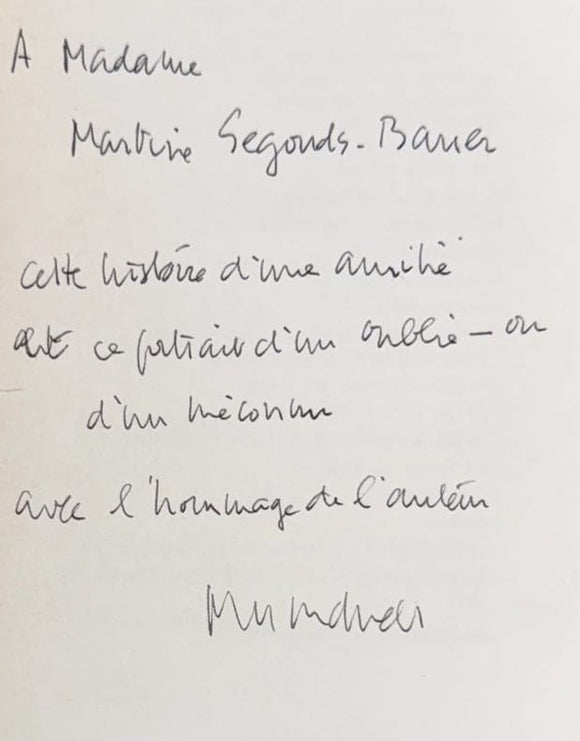 A Madame
Martine Segonds-Bauer
cette histoire d'une amitié
et ce portrait d'un oublié – ou
d'un méconnu
avec l'hommage de l'auteur